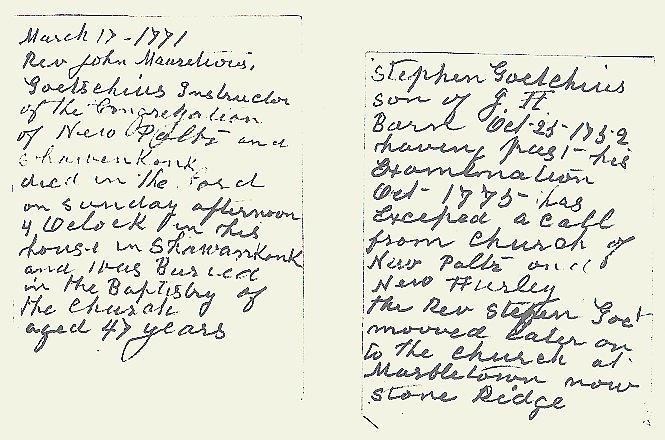 March 17 - 1771
Rev John Mauretius,
Goetschius Instructor
of the Congregation
of New Paltz and
Shawenkonk
died in the Lord
on sunday afternoon
4 Oclock in his
house in Shawankonk
and was Buried
in the Baptistry of
the Church
aged 47 years
Stephen Goetchius
son of J. H
Barn Oct-25-1752
having past his
Examination
Oct 1775 has
Excepted a call
from Church of
New Paltz and
New Hurley
the Rev Stephen Goet
mooved later on
to the church at
Marbletown now
Stone Ridge